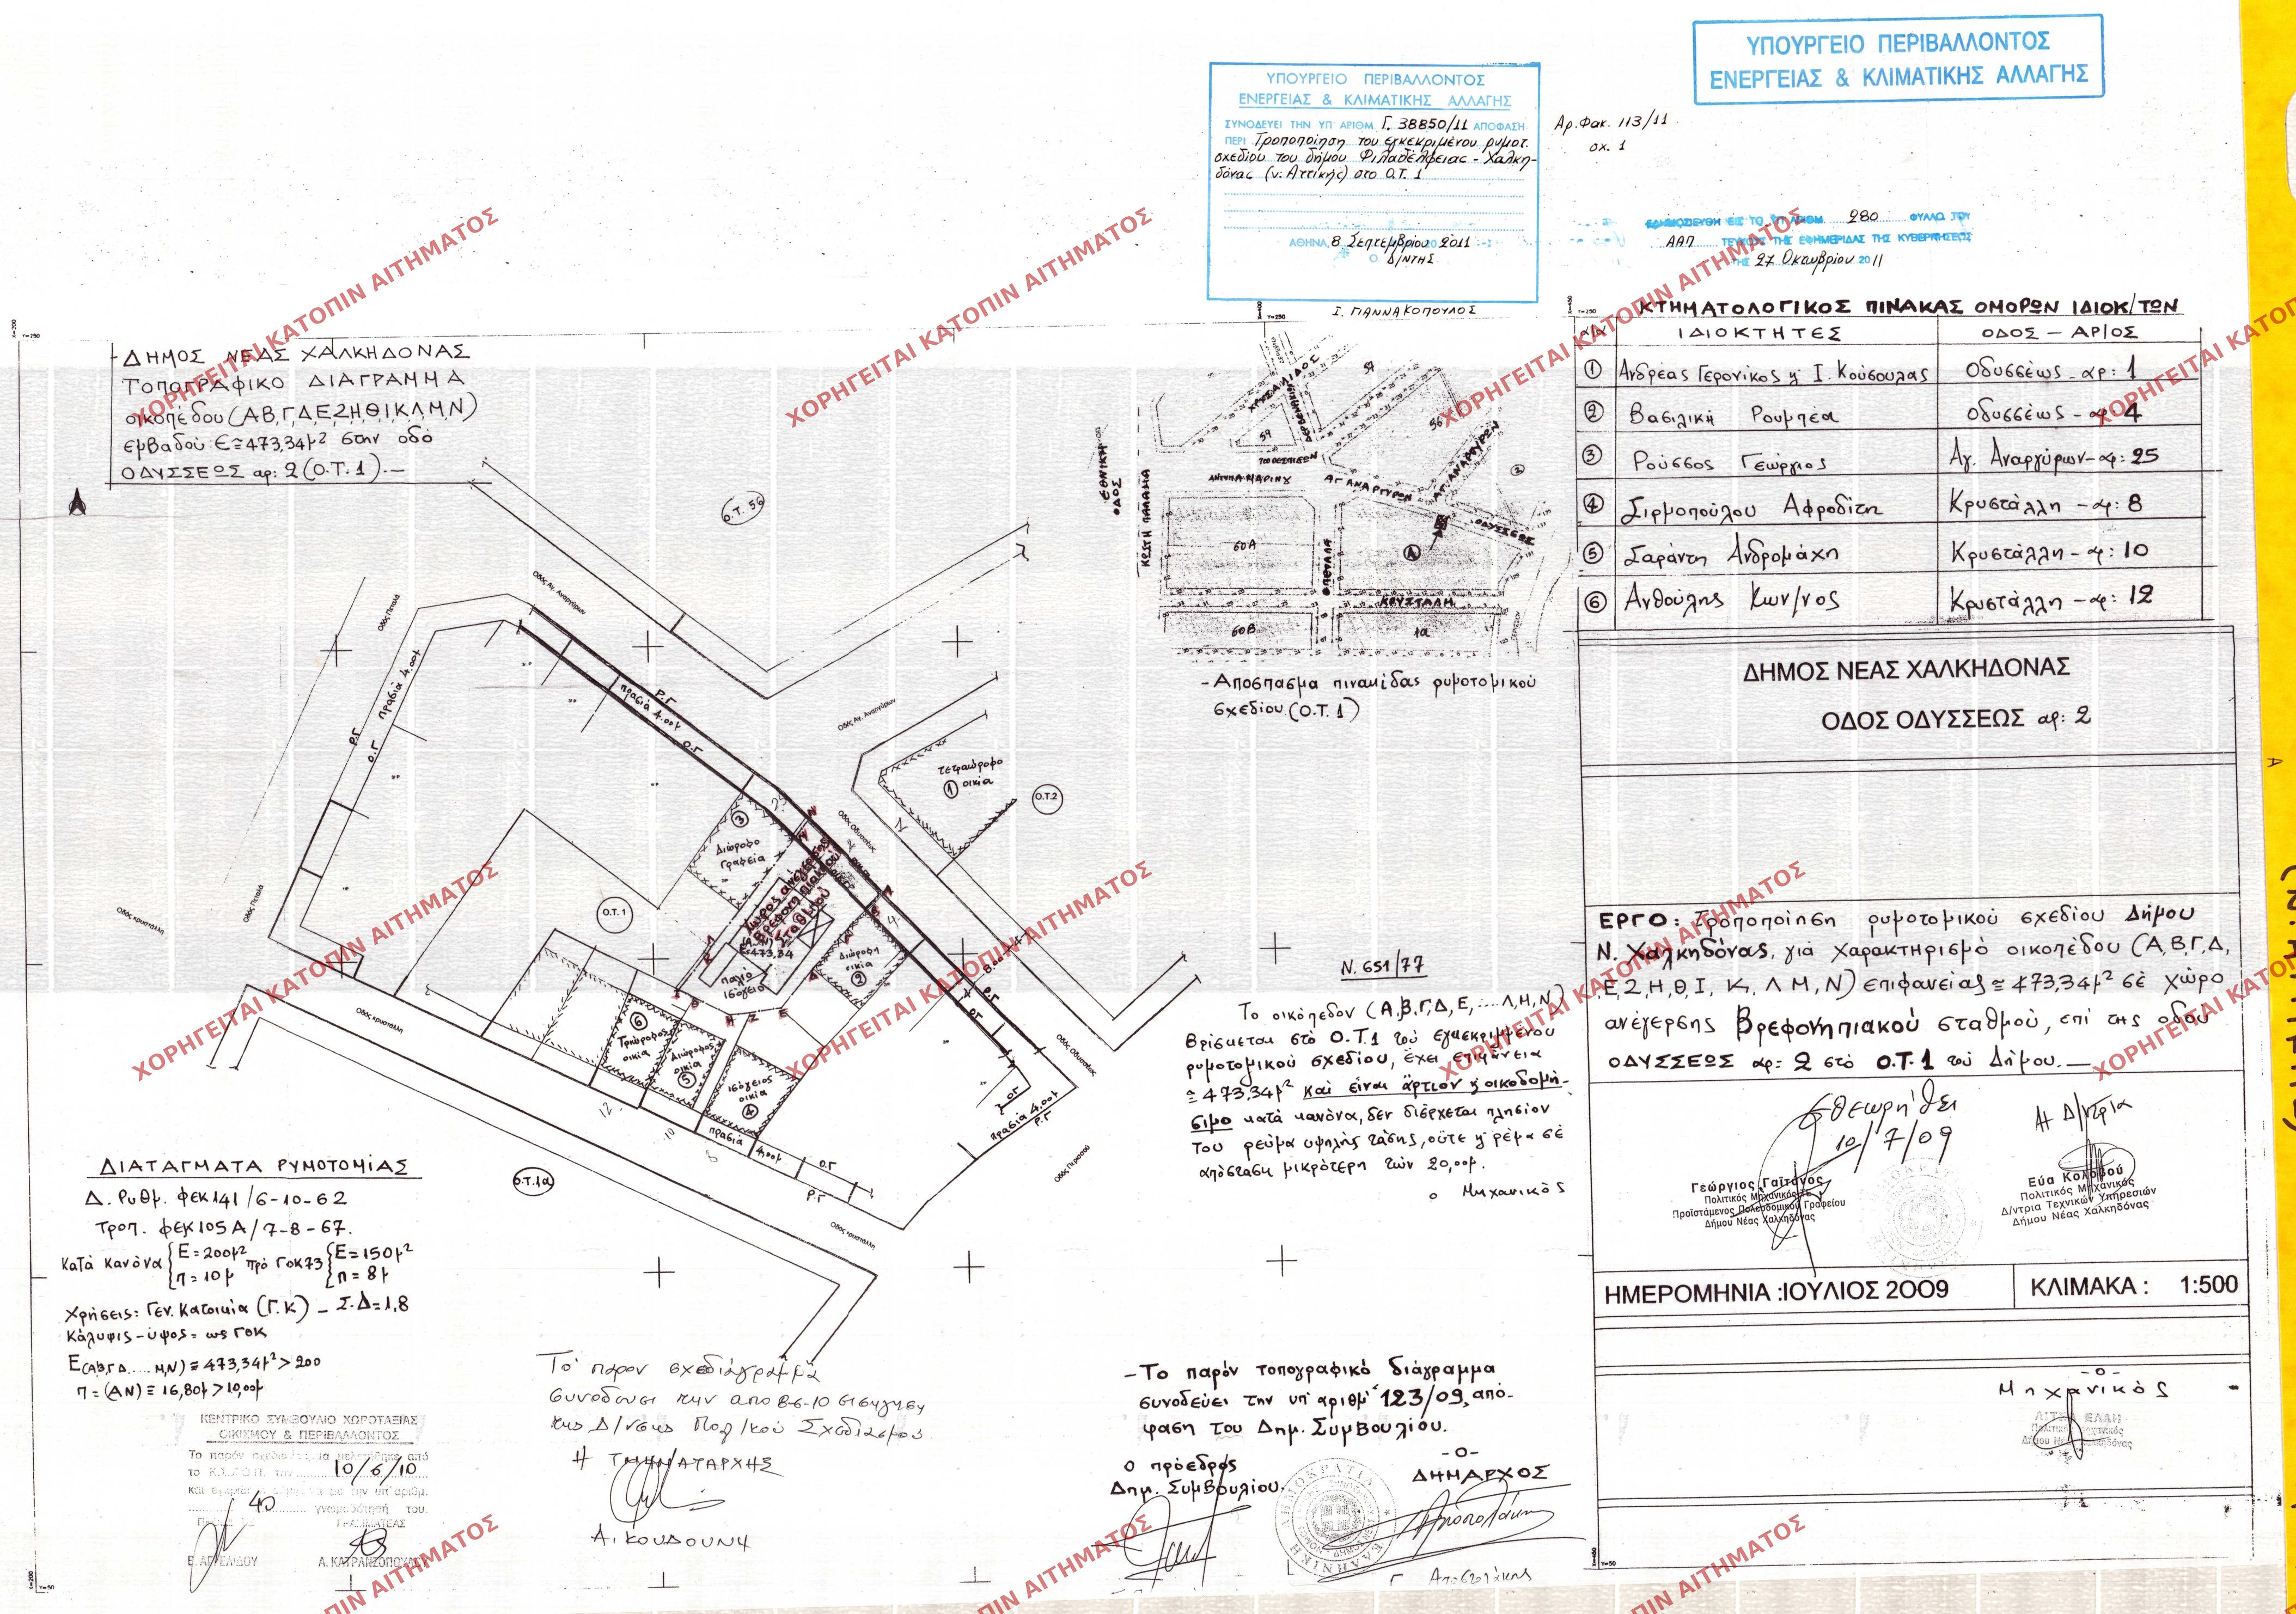 ΥΠΟΥΡΓΕΙΟ ΠΕΡΙΒΑΛΛΟΝΤΟΣ
ΕΝΕΡΓΕΙΑΣ & ΚΛΙΜΑΤΙΚΗΣ ΑΛΛΑΓΗΣ
ΥΠΟΥΡΓΕΙΟ ΠΕΡΙΒΑΛΛΟΝΤΟΣ
ΕΝΕΡΓΕΙΑΣ & ΚΛΙΜΑΤΙΚΗΣ ΑΛΛΑΓΗΣ
ΣΥΝΟΔΕΥΕΙ ΤΗΝ ΥΠ ΑΡΙΘΜ Γ. 38850/11 ΑΠΟΦΑΣΗ
ΠΕΡΙ Τροποποίηση του εγκεκριμένου ρυμοτ.
σχεδίου του δήμου Φιλαδέλφειας - Χαλκη-
δόνας (ν. Αττικής) στο Ο.Τ. 1
ΑΘΗΝΑ, 8 Σεπτεμβρίου 2011
Ο Δ/ΝΤΗΣ
Ι. ΓΙΑΝΝΑΚΟΠΟΥΛΟΣ
Αρ. Φακ. 113/11
σχ. 1
ΕΔΗΜΟΣΙΕΥΘΗ ΕΙΣ ΤΟ ΥΠ ΑΡΙΘΜ. 280 ΦΥΛΛΟ ΤΟΥ
ΑΑΠ ΤΕΥΧΟΥΣ ΤΗΣ ΕΦΗΜΕΡΙΔΑΣ ΤΗΣ ΚΥΒΕΡΝΗΣΕΩΣ
ΤΗΣ 27 Οκτωβρίου 2011
ΔΗΜΟΣ ΝΕΑΣ ΧΑΛΚΗΔΟΝΑΣ
ΤΟΠΟΓΡΑΦΙΚΟ ΔΙΑΓΡΑΜΜΑ
οικοπέδου (Α,Β,Γ,Δ,Ε,Ζ,Η,Θ,Ι,Κ,Λ,Μ,Ν)
εμβαδού Ε≅473,34μ² στην οδό
ΟΔΥΣΣΕΩΣ αρ: 2 (Ο.Τ. 1).—
ΚΤΗΜΑΤΟΛΟΓΙΚΟΣ ΠΙΝΑΚΑΣ ΟΜΟΡΩΝ ΙΔΙΟΚ/ΤΩΝ
α/α ΙΔΙΟΚΤΗΤΕΣ ΟΔΟΣ – ΑΡ/ΟΣ
1 Ανδρέας Γερονίκος ή Ι. Κούσουλας Οδυσσέως - αρ: 1
2 Βασιλική Ρουμπέα Οδυσσέως - αρ: 4
3 Ρούσσος Γεώργιος Αγ. Αναργύρων - αρ: 25
4 Σιρμοπούλου Αφροδίτη Κρυστάλλη - αρ: 8
5 Σαράντη Ανδρομάχη Κρυστάλλη - αρ: 10
6 Ανθούλης Κων/νος Κρυστάλλη - αρ: 12
ΧΡΥΣΑΛΙΔΟΣ
59
59
56
ΑΓ. ΑΝΑΡΓΥΡΩΝ
ΑΓ ΑΝΑΡΓΥΡΩΝ
ΟΔΥΣΣΕΩΣ
ΕΘΝΙΚΗ ΟΔΟΣ
ΚΩΣΤΗ ΠΑΛΑΜΑ
60Α
Α
ΚΡΥΣΤΑΛΗ
60Β
1α
- Απόσπασμα πινακίδας ρυμοτομικού
σχεδίου (Ο.Τ. 1)
ΔΗΜΟΣ ΝΕΑΣ ΧΑΛΚΗΔΟΝΑΣ
ΟΔΟΣ ΟΔΥΣΣΕΩΣ αρ: 2
Ο.Τ. 56
Οδός Αγ. Αναργύρων
Οδός Πιπαλά
πρασιά 4.00μ
Ρ.Γ
Ο.Γ
Ρ.Γ
πρασιά 4.00μ
Ο.Γ
Οδός Αγ. Αναργύρων
τετραώροφο
1 οικία
Ο.Τ.2
Οδός Οδυσσέως
3
Διώροφο
Γραφεία
Χώρος ανέγερσης
Βρεφονηπιακού
Σταθμού
Ε=473,34
παλιό
ισόγειο
Διώροφη
οικία
2
Ο.Τ. 1
Οδός Πιπαλά
Οδός κρυστάλλη
6
Τριώροφος
οικία
Διώροφος
οικία
5
ισόγειος
οικία
4
12
10
8
πρασιά
4,00μ
Ο.Γ
Ρ.Γ
Οδός κρυστάλλη
Ο.Τ.1α
Οδός κρυστάλλη
8.00
Ρ.Γ
Ο.Γ
Οδός Οδυσσέως
Ο.Γ
πρασιά 4.00μ
Ρ.Γ
Ν. 651/77
Το οικόπεδον (Α,Β,Γ,Δ,Ε,....Λ,Μ,Ν)
Βρίσκεται στο Ο.Τ.1 του εγκεκριμμένου
ρυμοτομικού σχεδίου, έχει επιφάνεια
≅ 473,34μ² και είναι άρτιον ή οικοδομή-
σιμο κατά κανόνα, δεν διέρχεται πλησίον
του ρεύμα υψηλής τάσης, ούτε ή ρέμα σε
απόσταση μικρότερη των 20,00μ.
ο Μηχανικός
ΕΡΓΟ: Τροποποίηση ρυμοτομικού σχεδίου Δήμου
Ν. Χαλκηδόνας, γιά χαρακτηρισμό οικοπέδου (Α,Β,Γ,Δ,
Ε,Ζ,Η,Θ,Ι,Κ,Λ,Μ,Ν) επιφανείας ≅ 473,34μ² σε χώρο
ανέγερσης Βρεφονηπιακού σταθμού, επί της οδού
ΟΔΥΣΣΕΩΣ αρ: 2 στό Ο.Τ. 1 του Δήμου.—
Εθεωρήθει
10/7/09
Η Δ/ντρια
Γεώργιος Γαϊτάνος
Πολιτικός Μηχανικός ΤΕ
Προϊστάμενος Πολεοδομικού Γραφείου
Δήμου Νέας Χαλκηδόνας
Εύα Κολοβού
Πολιτικός Μηχανικός
Δ/ντρια Τεχνικών Υπηρεσιών
Δήμου Νέας Χαλκηδόνας
ΗΜΕΡΟΜΗΝΙΑ :ΙΟΥΛΙΟΣ 2009 ΚΛΙΜΑΚΑ : 1:500
-ο-
Μηχανικός
ΔΙΑΤΑΓΜΑΤΑ ΡΥΜΟΤΟΜΙΑΣ
Δ. Ρυθμ. ΦΕΚ 141/6-10-62
Τροπ. ΦΕΚ 105 Α/7-8-67.
Κατά κανόνα {Ε=200μ² Π=10μ προ ΓΟΚ73 {Ε=150μ² Π=8μ
Χρήσεις: Γεν. Κατοικία (Γ.Κ) – Σ.Δ=1,8
Κάλυψις - ύψος = ως ΓΟΚ
Ε(Α,Β,Γ,Δ.....Μ,Ν) ≅ 473,34μ² > 200
Π = (ΑΝ) ≅ 16,80μ > 10,00μ
ΚΕΝΤΡΙΚΟ ΣΥΜΒΟΥΛΙΟ ΧΩΡΟΤΑΞΙΑΣ
ΟΙΚΙΣΜΟΥ & ΠΕΡΙΒΑΛΛΟΝΤΟΣ
Το παρόν σχεδιάγραμμα μελετήθηκε από
το Κ.Σ.Χ.Ο.Π. την 10/6/10
40 γνωμοδότησή του.
ΓΡΑΜΜΑΤΕΑΣ
Α. ΚΑΤΡΑΝΤΖΟΠΟΥΛΟΥ
Το παρον σχεδιάγραμμα
συνοδευει την απο 8-6-10 εισηγηση
της Δ/νσης Πολ/κού Σχεδιασμού
Η ΤΜΗΜΑΤΑΡΧΗΣ
Α. ΚΟΥΔΟΥΝΗ
- Το παρόν τοπογραφικό διάγραμμα
συνοδεύει την υπ' αριθμ' 123/09, από-
φαση του Δημ. Συμβουλίου.
-ο-
ο πρόεδρος
Δημ. Συμβουλίου.
ΔΗΜΑΡΧΟΣ
ΧΟΡΗΓΕΙΤΑΙ ΚΑΤΟΠΙΝ ΑΙΤΗΜΑΤΟΣ